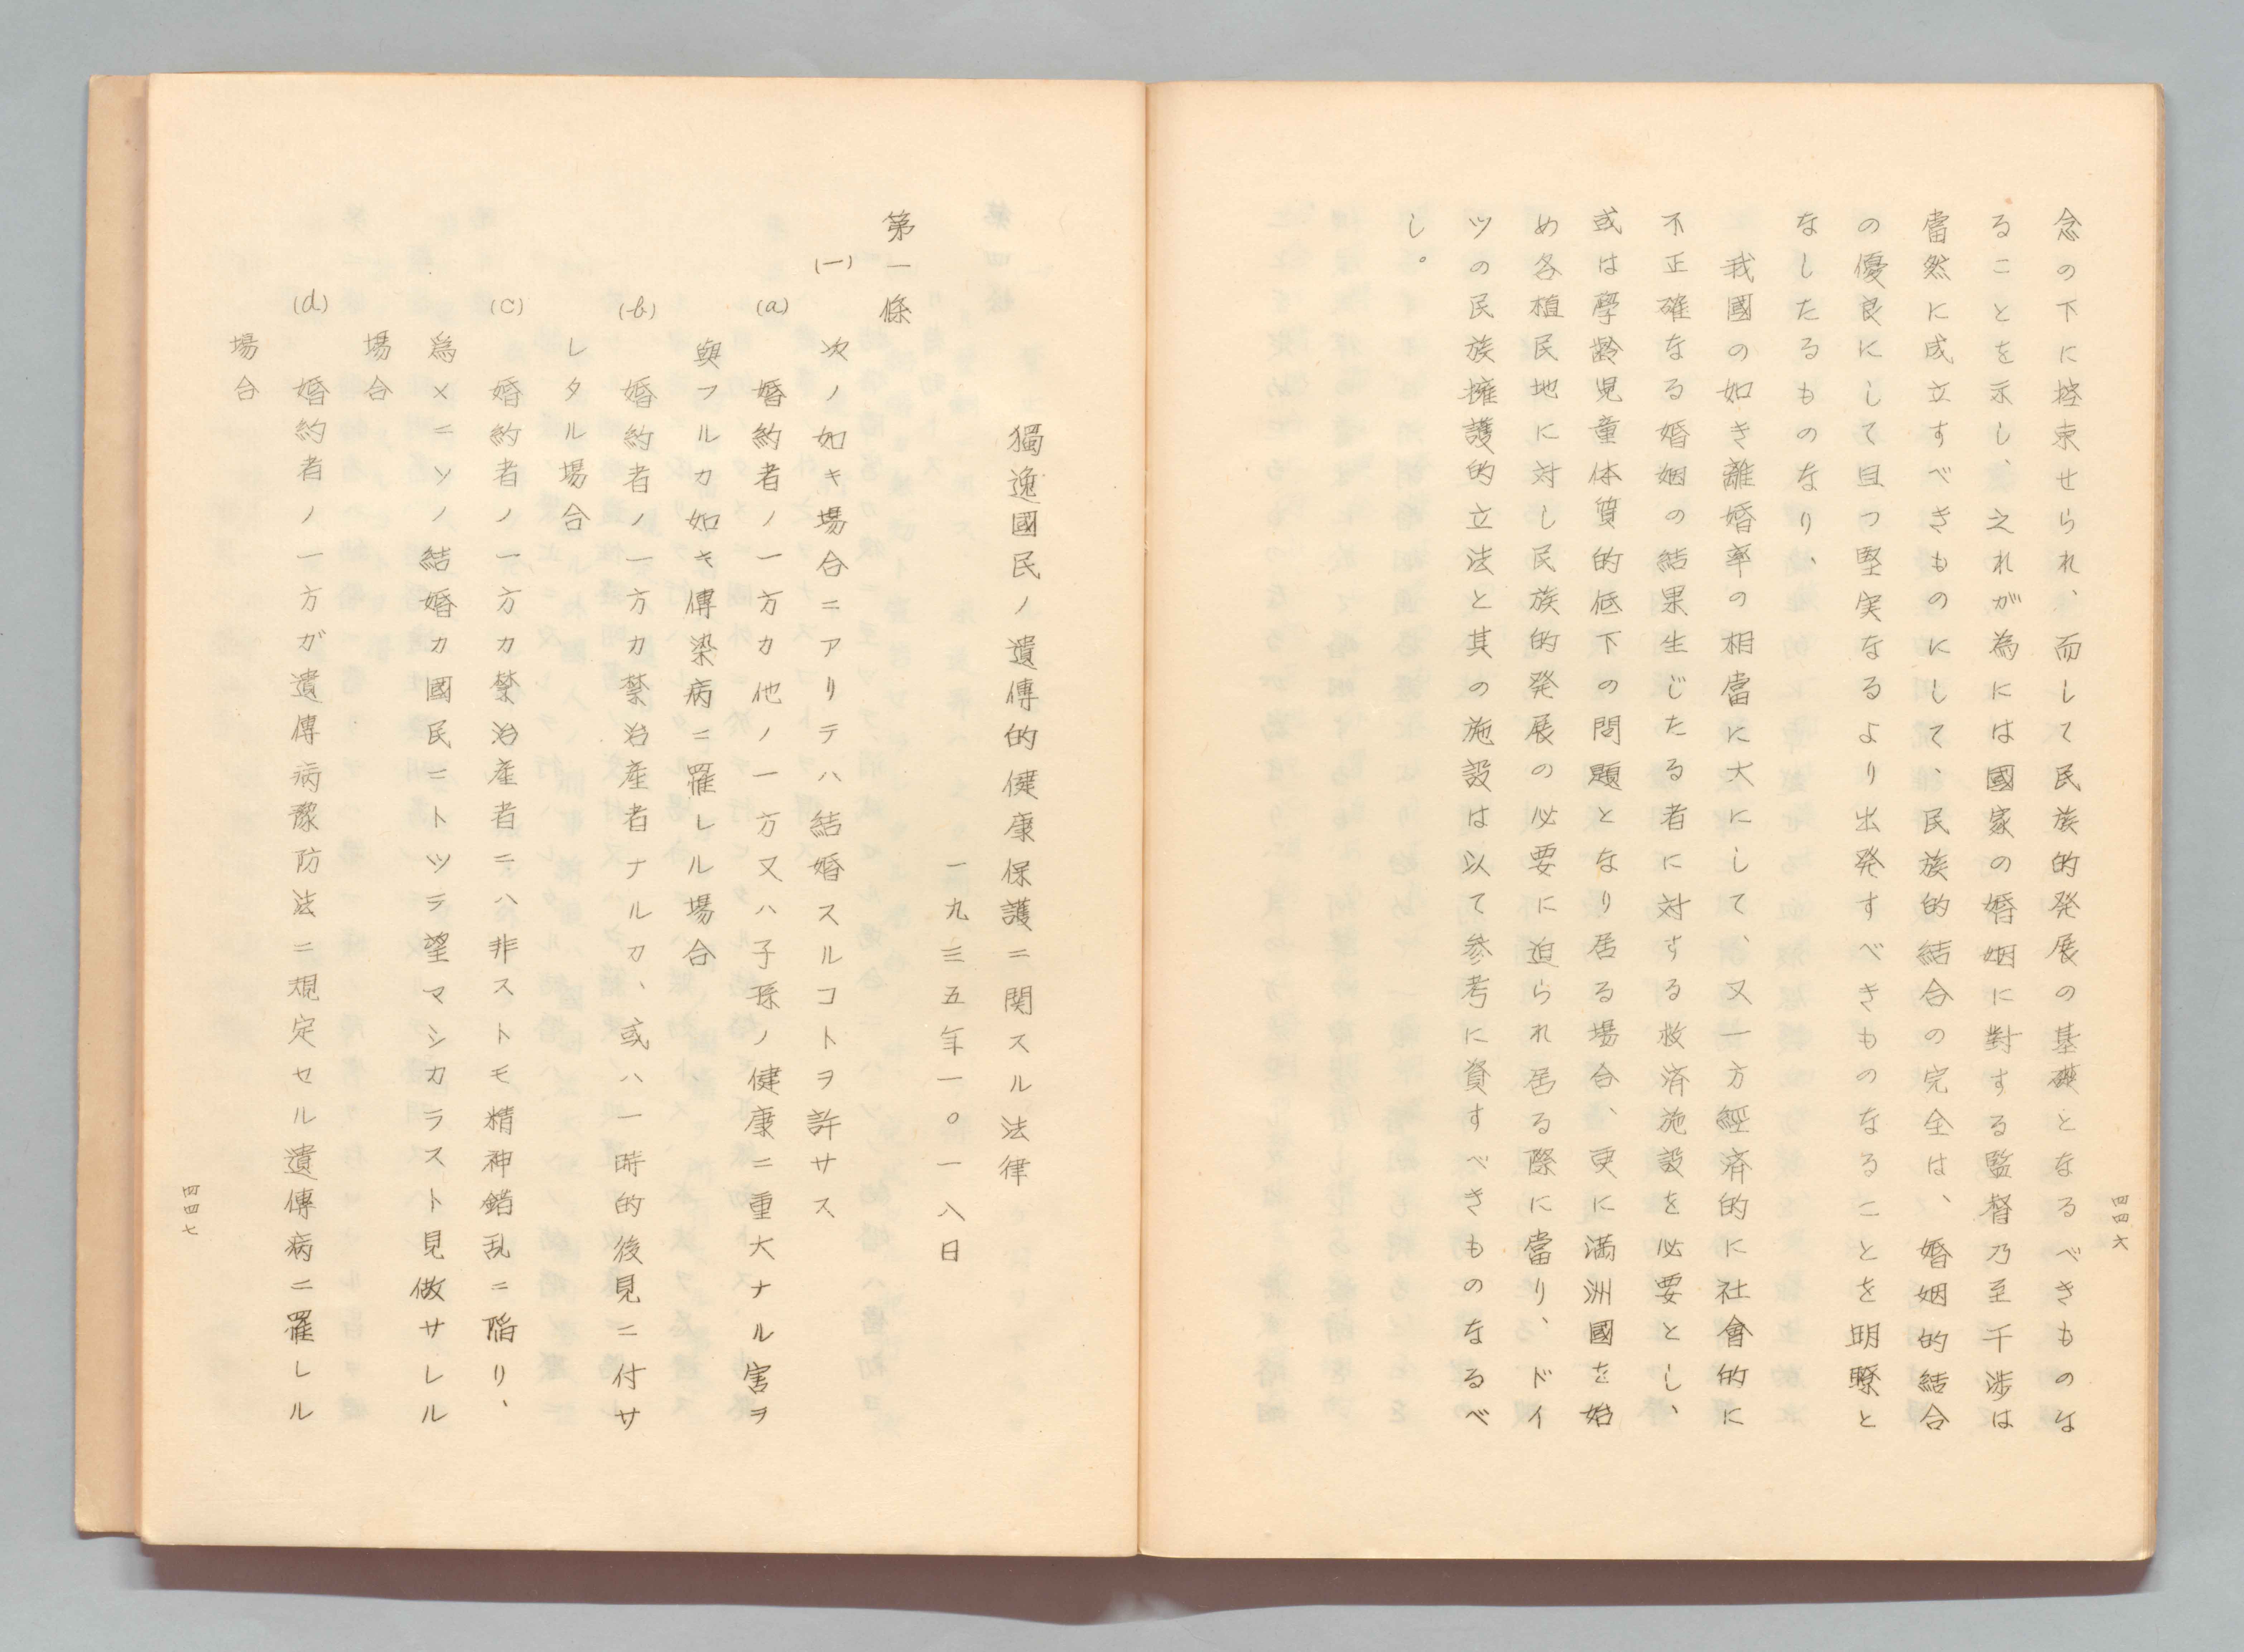 四四六
念の下に控束せられ、而して民族的発展の基礎となるべきものな
ることを示し、之れが為には國家の婚姻に對する監督乃至干渉は
當然に成立すべきものにして、民族的結合の完全は、婚姻的結合
の優良にして且つ堅実なるより出発すべきものなることを明瞭と
なしたるものなり、
我國の如き離婚率の相當に大にして、又一方經済的に社會的に
不正確なる婚姻の結果生じたる者に対する救済施設を必要とし、
或は學齢児童体質的低下の問題となり居る場合、更に満洲國を始
め各植民地に対し民族的発展の必要に迫られ居る際に當り、ドイ
ツの民族擁護的立法と其の施設は以て参考に資すべきものなるべ
し。
獨逸國民ノ遺傳的健康保護ニ関スル法律
一九三五年一〇一八日
第一條
(一) 次ノ如キ場合ニアリテハ結婚スルコトヲ許サス
(a) 婚約者ノ一方カ他ノ一方又ハ子孫ノ健康ニ重大ナル害ヲ
與フルカ如キ傳染病ニ罹レル場合
(b) 婚約者ノ一方カ禁治産者ナルカ、或ハ一時的後見ニ付サ
レタル場合
(c) 婚約者ノ一方カ禁治産者ニハ非ストモ精神錯乱ニ陥リ、
為メニソノ結婚カ國民ニトツテ望マシカラスト見做サレル
場合
(d) 婚約者ノ一方ガ遺傳病豫防法ニ規定セル遺傳病ニ罹レル
場合
四四七